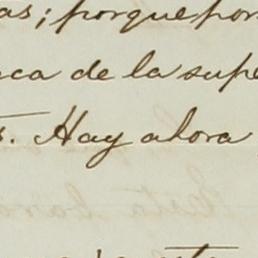 as; porque por
ca de la supe
s. Hay ahora